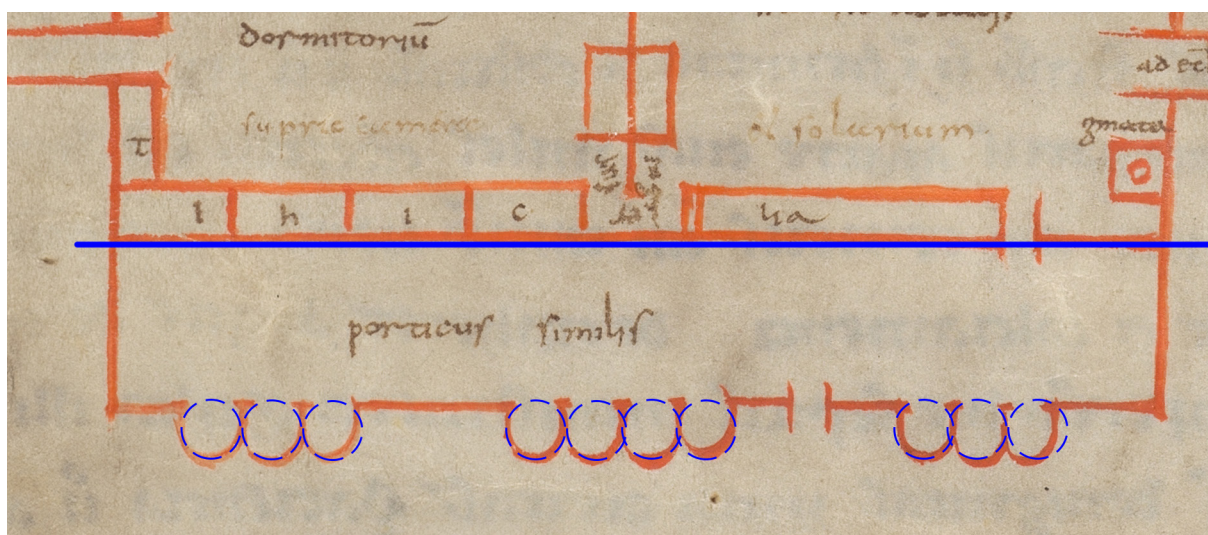 dormitoriū
ad ec̄
supra camera
& solarium
T
l h i c
ua
porticus similis